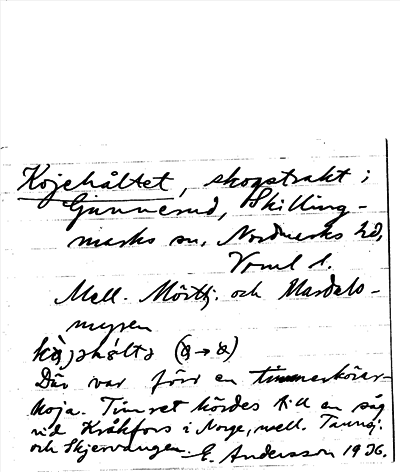 Kojehåltet, skogstrakt i
Gunnerud, Skilling-
marks sn, Nordmarks hd,
Vrml l.
Mell. Mörttj. och Mardals-
myren
Där var förr en timmerkörar-
koja. Timret kördes till en såg
vid Kråkfors i Norge, mell.
och Skjervangen. E. Andersson 1936.